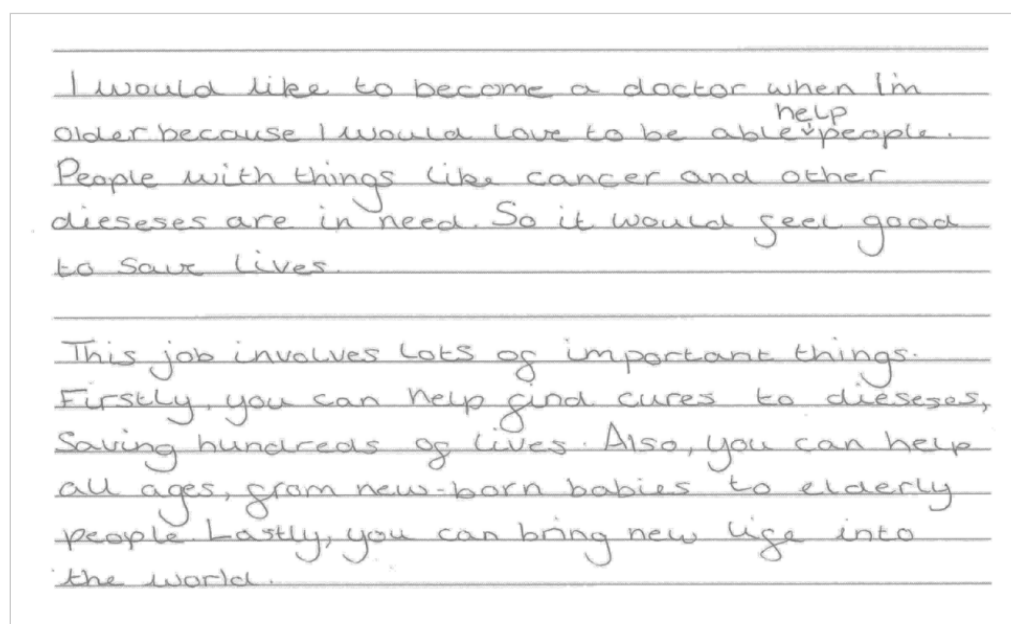 I would like to become a doctor when I'm
older because I would love to be able help people.
People with things like cancer and other
dieseses are in need. So it would feel good
to save lives.
This job involves lots of important things.
Firstly, you can help find cures to dieseses,
Saving hundreds of lives. Also, you can help
all ages, from new-born babies to elderly
people. Lastly, you can bring new life into
the world.